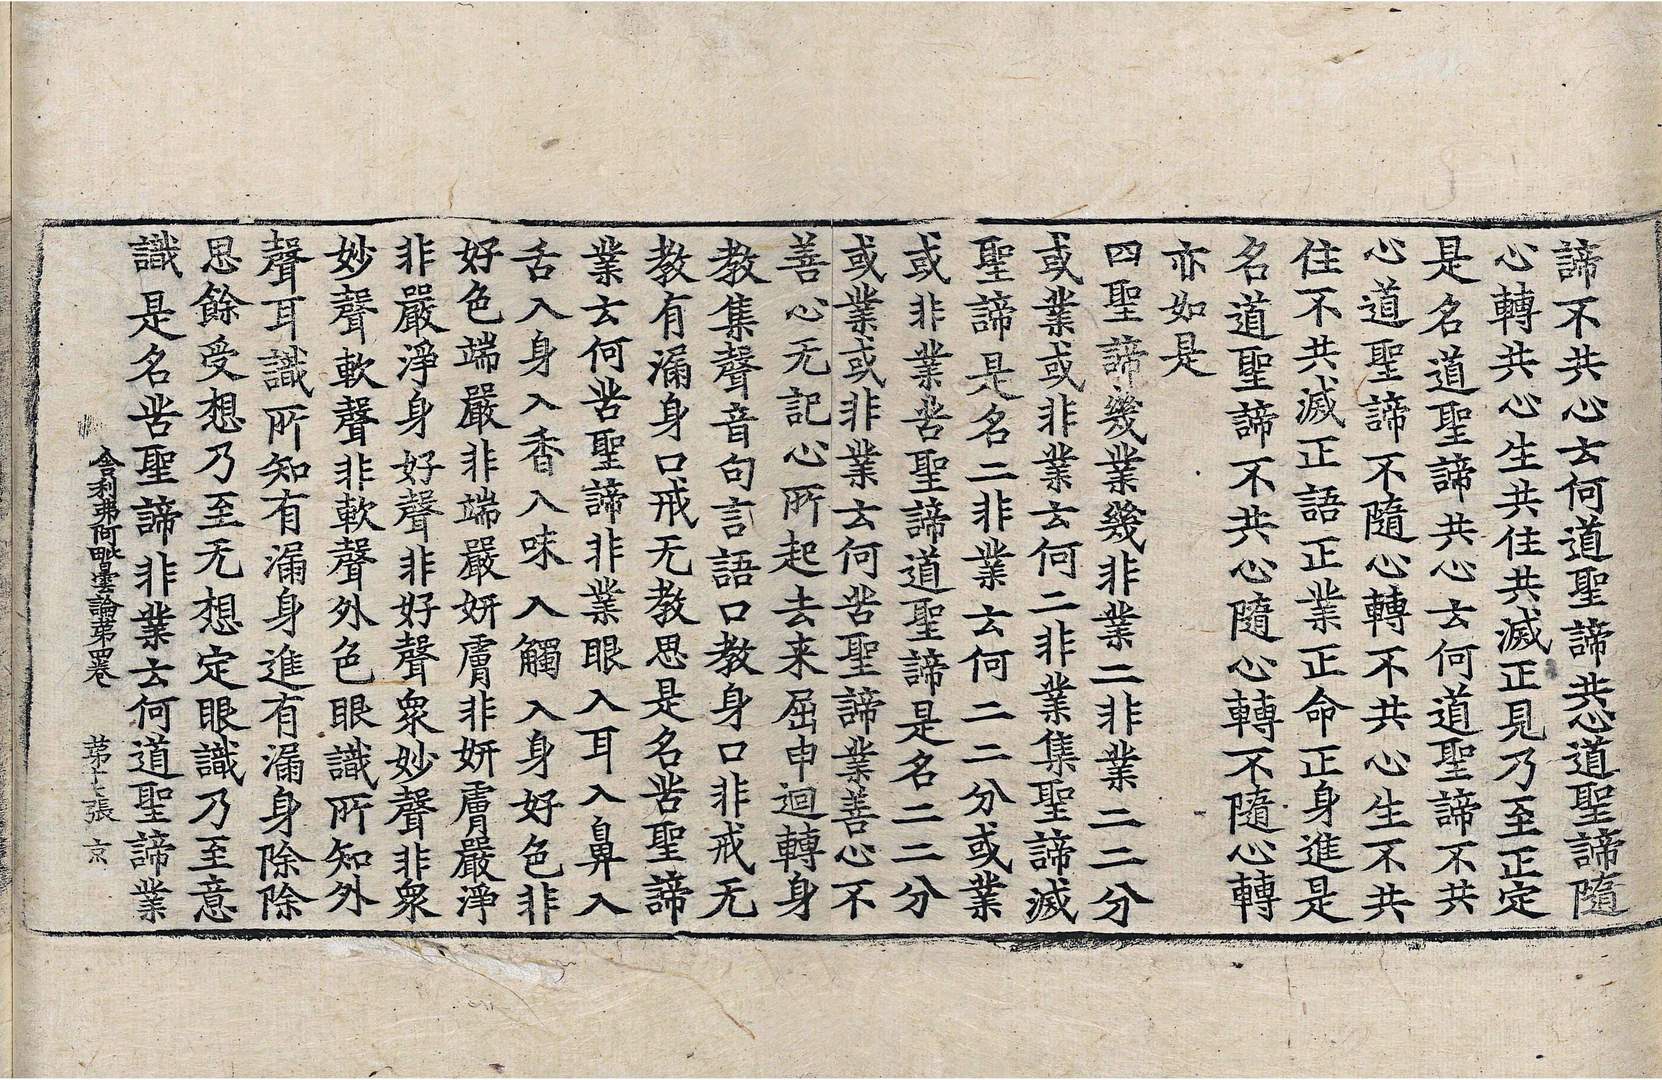 諦不共心云何道聖諦共心道聖諦隨
心轉共心生共住共滅正見乃至正定
是名道聖諦共心云何道聖諦不共
心道聖諦不隨心轉不共心生不共
住不共滅正語正業正命正身進是
名道聖諦不共心隨心轉不隨心轉
亦如是
四聖諦幾業幾非業二非業二二分
或業或非業云何二非業集聖諦滅
聖諦是名二非業云何二二分或業
或非業苦聖諦道聖諦是名二二分
或業或非業云何苦聖諦業善心不
善心无記心所起去来屈申迴轉身
教集聲音句言語口教身口非戒无
教有漏身口戒无教思是名苦聖諦
業云何苦聖諦非業眼入耳入鼻入
舌入身入香入味入觸入身好色非
好色端嚴非端嚴妍膚非妍膚嚴淨
非嚴淨身好聲非好聲衆妙聲非衆
妙聲軟聲非軟聲外色眼識所知外
聲耳識所知有漏身進有漏身除除
思餘受想乃至无想定眼識乃至意
識是名苦聖諦非業云何道聖諦業
舍利弗阿毗曇論苐四卷 苐十七張 京